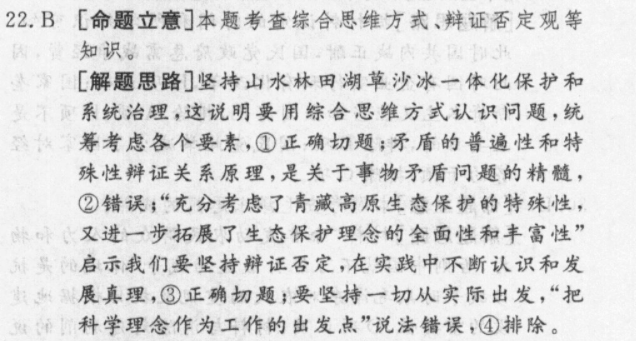 22.B [命题立意]本题考查综合思维方式、辩证否定观等
知识。
[解题思路]坚持山水林田湖草沙冰一体化保护和
系统治理,这说明要用综合思维方式认识问题,统
筹考虑各个要素,①正确切题;矛盾的普遍性和特
殊性辩证关系原理,是关于事物矛盾问题的精髓,
②错误;“充分考虑了青藏高原生态保护的特殊性,
又进一步拓展了生态保护理念的全面性和丰富性”
启示我们要坚持辩证否定,在实践中不断认识和发
展真理,③正确切题;要坚持一切从实际出发,“把
科学理念作为工作的出发点”说法错误,④排除。